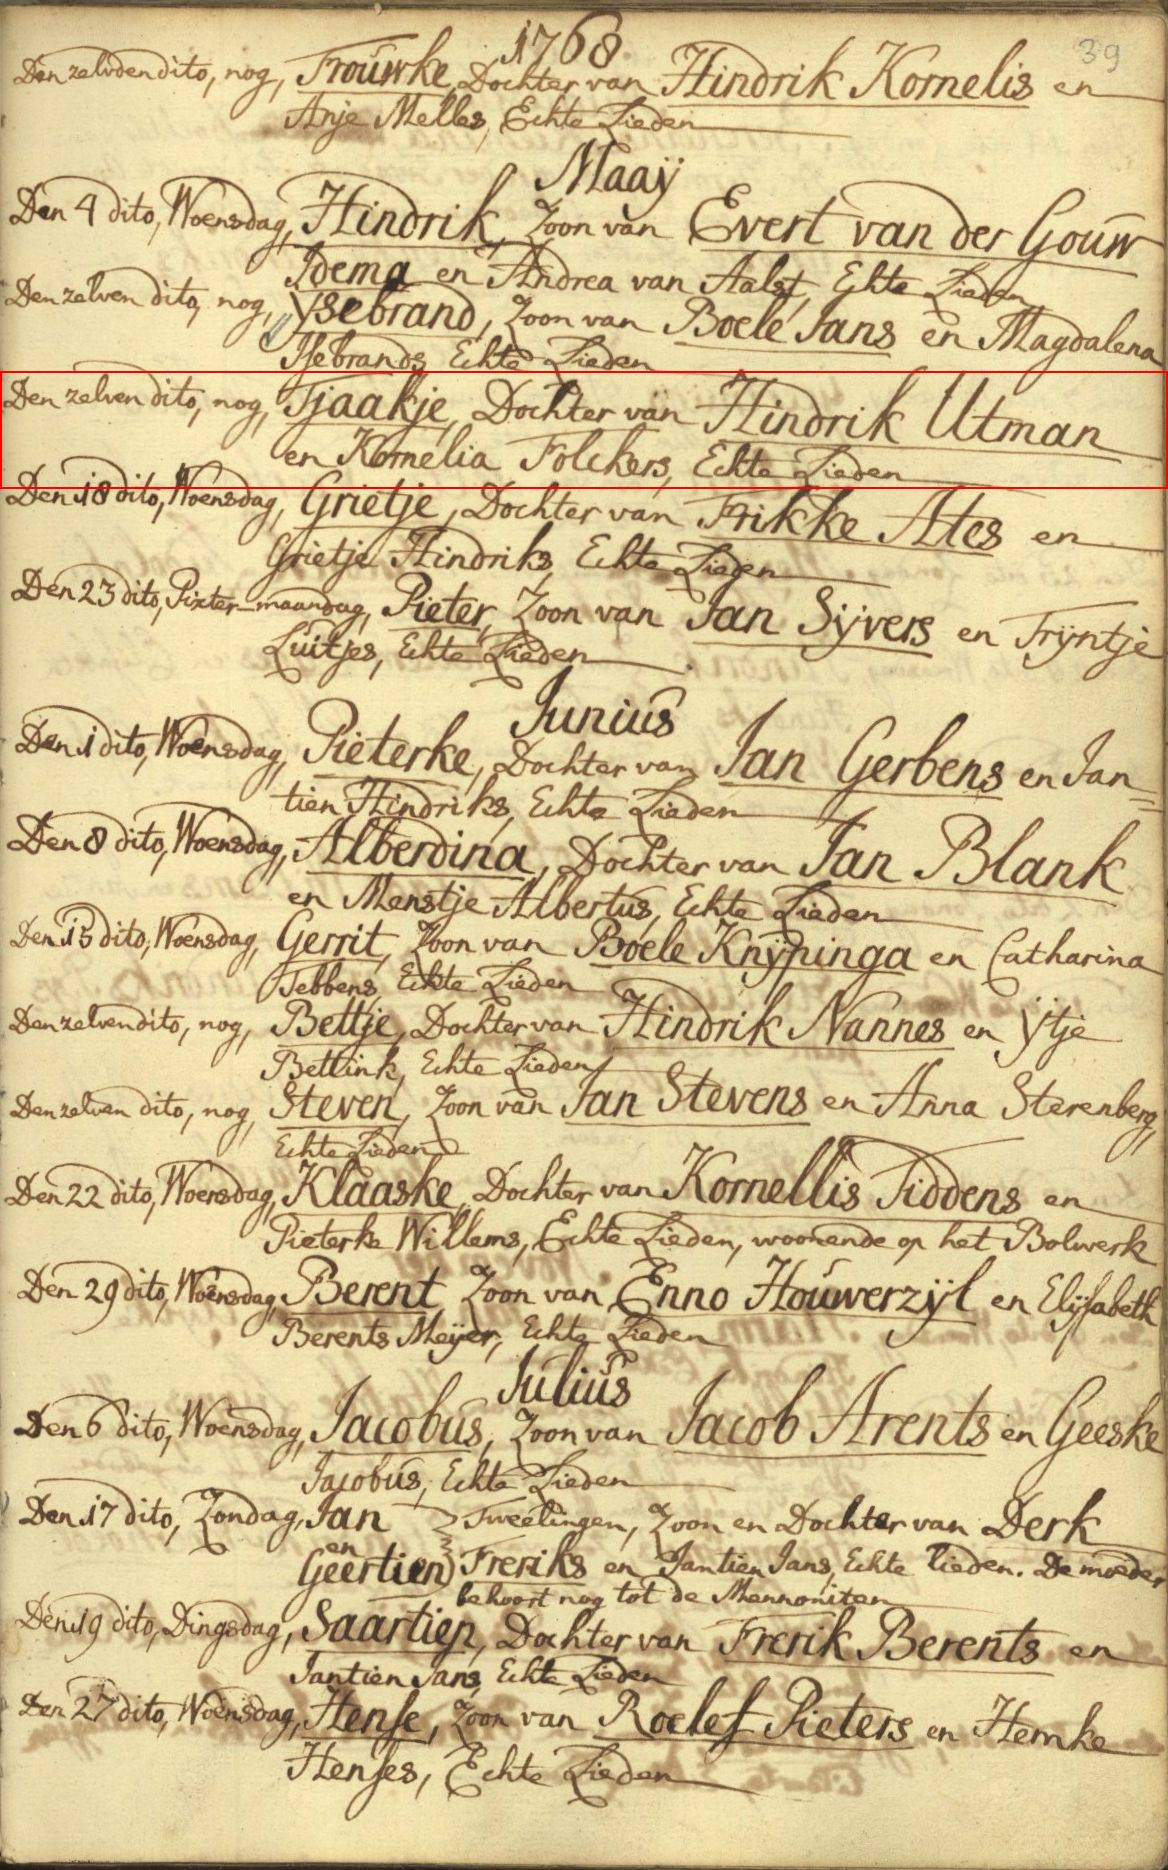 1768.
39
Den zelvden dito, nog, Trouwke, Dochter van Hindrik Kornelis en
Anje Melles, Echte Lieden
Maaÿ
Den 4 dito, Woensdag, Hindrik, Zoon van Evert van der Gouw
Idema en Andrea van Aalst, Echte Lieden
Den zelven dito, nog, Ysebrand, Zoon van Boele Jans en Magdalena
Ysebrands, Echte Lieden
Den zelven dito, nog, Tjaakje, Dochter van Hindrik Utman
en Kornelia Folckers, Echte Lieden
Den 18 dito, Woensdag, Grietje, Dochter van Frikke Ates en
Grietje Hindriks, Echte Lieden
Den 23 dito, Pixter-maandag, Pieter, Zoon van Jan Sijvers en Trÿntje
Luitjes, Echte Lieden
Junius
Den 1 dito, Woensdag, Pieterke, Dochter van Jan Gerbens en Jan=
tien Hindriks, Echte Lieden
Den 8 dito, Woensdag, Alberdina, Dochter van Jan Blank
en Menstje Albertus, Echte Lieden
Den 15 dito, Woensdag, Gerrit, Zoon van Boele Knÿpinga en Catharina
Tebbens, Echte Lieden
Den zelven dito, nog, Bettje, Dochter van Hindrik Nannes en Ytje
Bettink, Echte Lieden
Den zelven dito, nog, Steven, Zoon van Jan Stevens en Anna Sterenberg,
Echte Lieden
Den 22 dito, Woensdag, Klaaske, Dochter van Kornellis Tiddens en
Pieterke Willems, Echte Lieden, woonende op het Bolwerk
Den 29 dito, Woensdag, Berent, Zoon van Enno Houwerzÿl en Elÿsabeth
Berents Meÿer, Echte Lieden
Julius
Den 6 dito, Woensdag, Jacobus, Zoon van Jacob Arents en Geeske
Jacobus, Echte Lieden
Den 17 dito, Zondag, Jan } Tweelingen, Zoon en Dochter van Derk
en
Geertien } Freriks en Jantien Jans, Echte lieden. De moeder
behoort nog tot de Mennoniten
Den 19 dito, Dingsdag, Saartien, Dochter van Frerik Berents en
Jantien Jans, Echte Lieden
Den 27 dito, Woensdag, Hense, Zoon van Roelef Pieters en Hemke
Henses, Echte Lieden